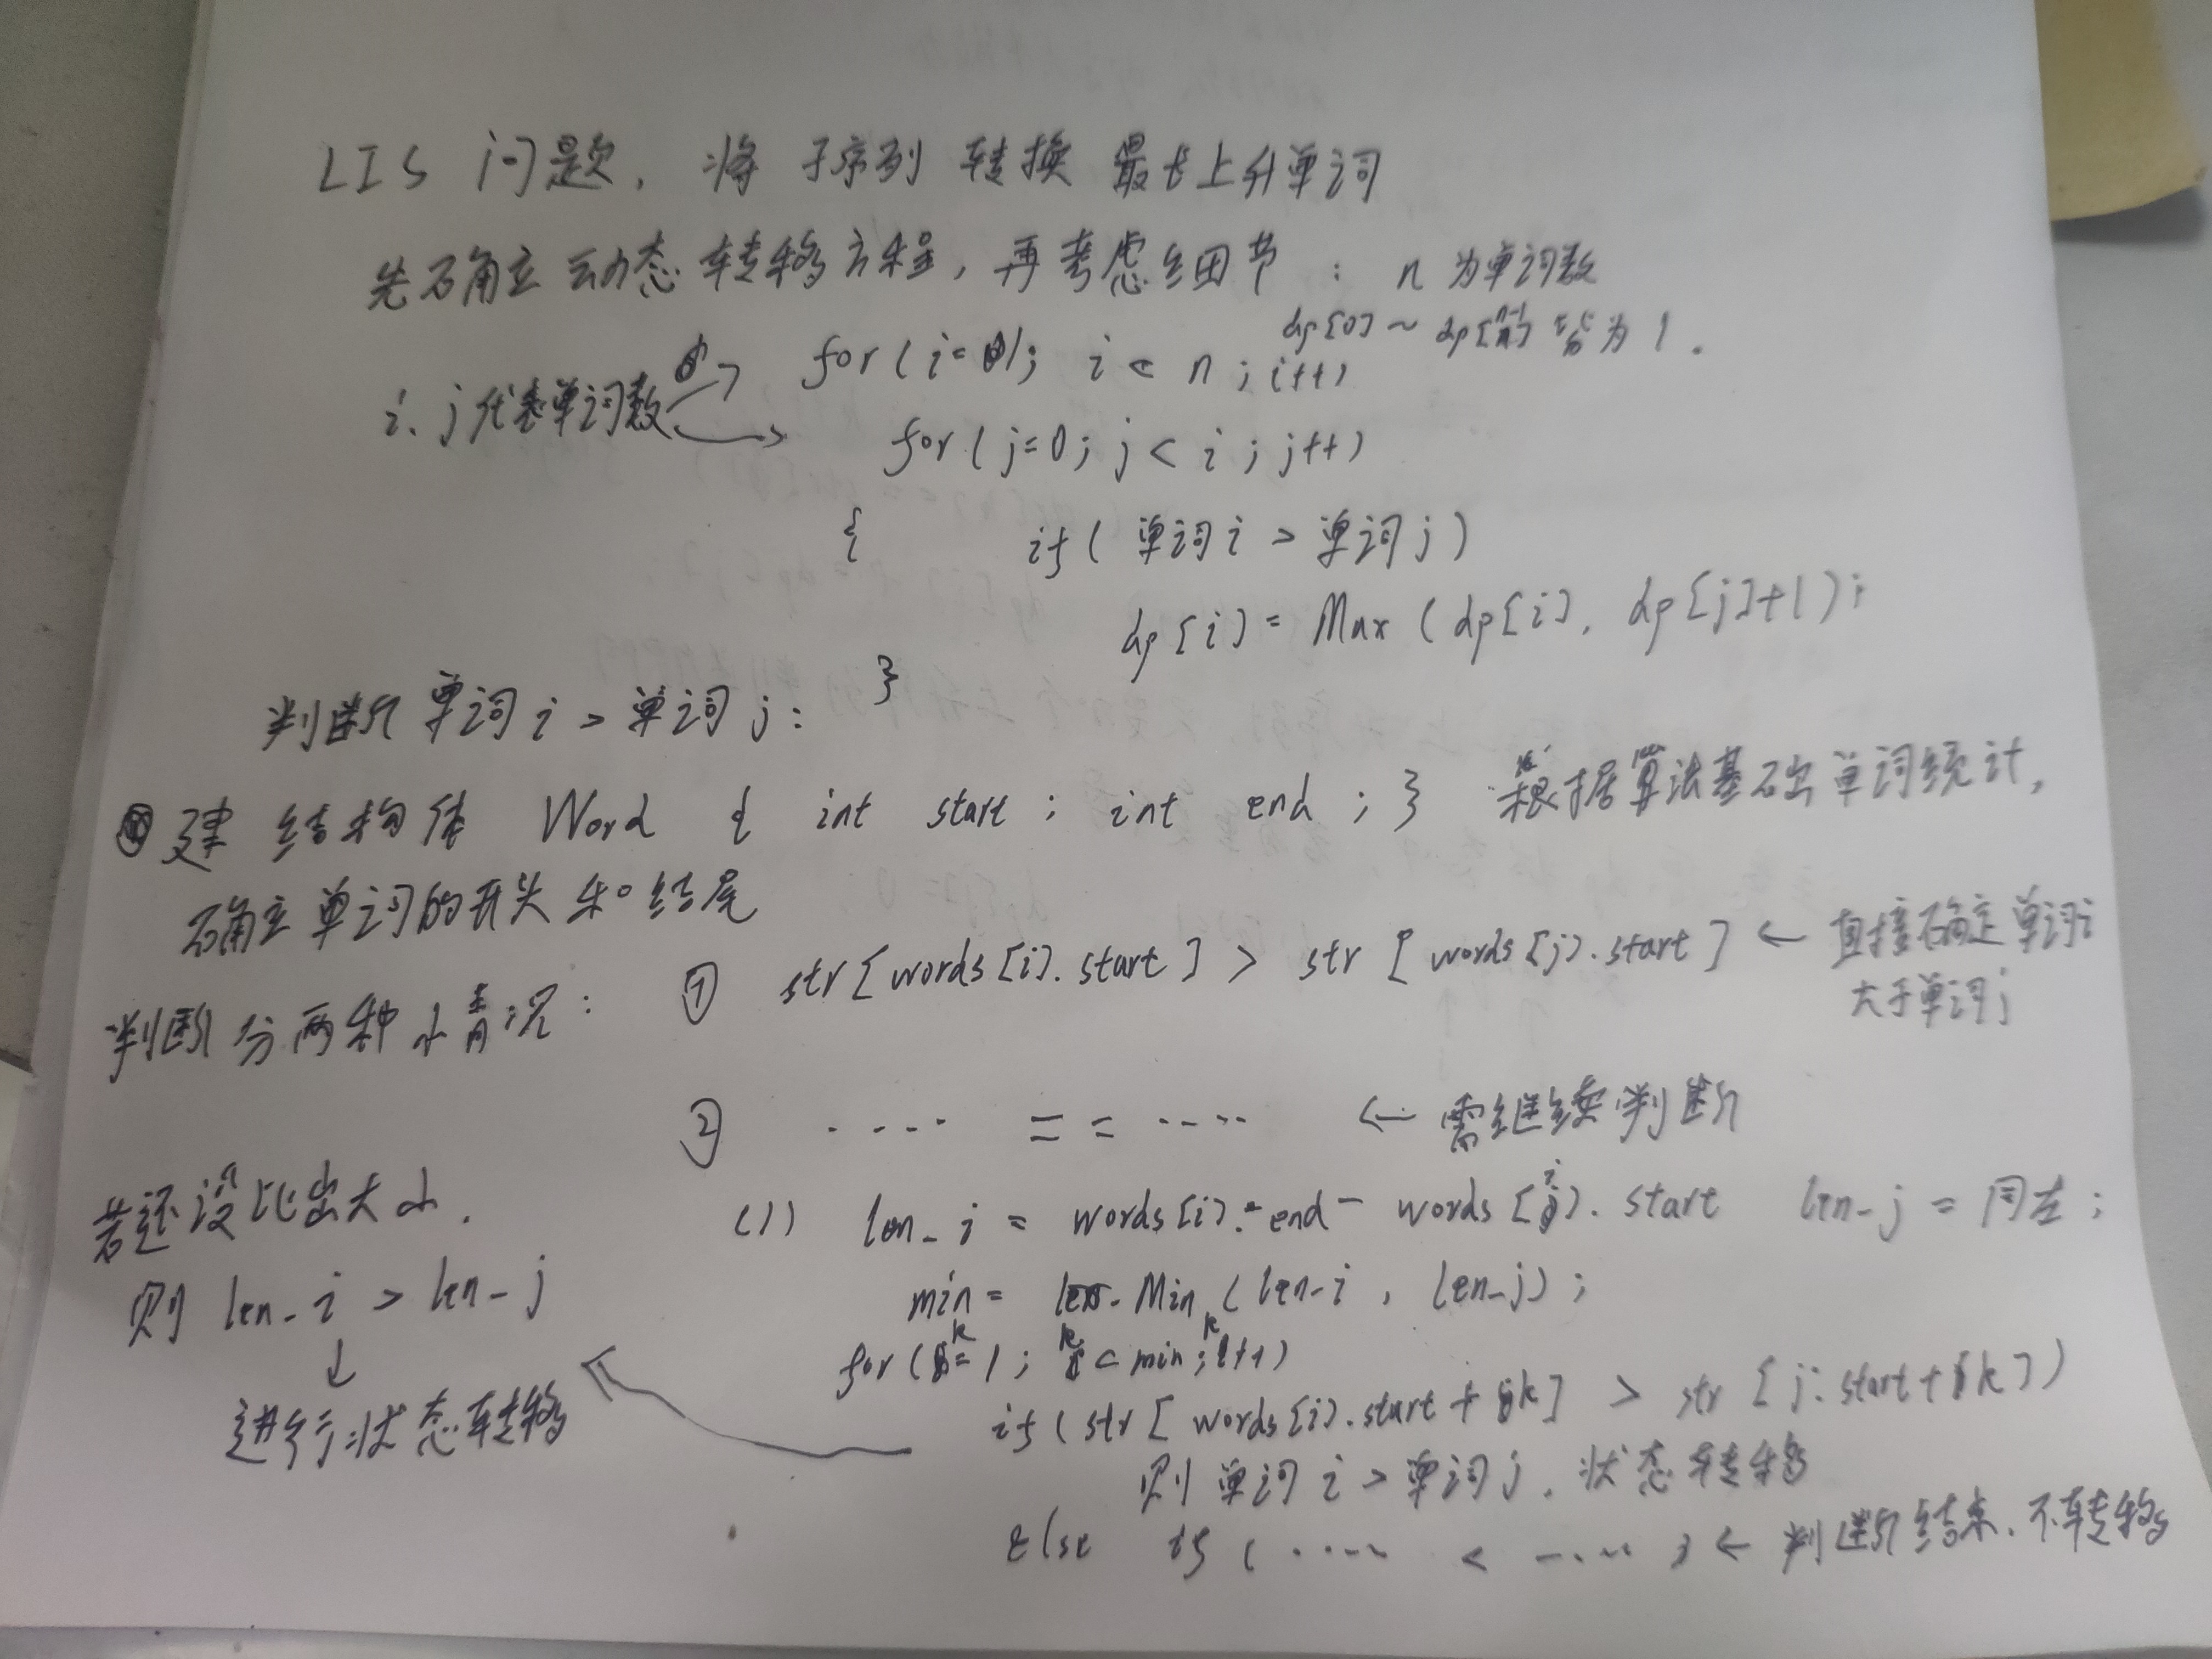 LIS 问题，将 子序列 转换 最长上升单词
先确立动态转移方程，再考虑细节： n 为单词数
dp[0] ~ dp[n-1] 皆为 1.
i、j代表单词数 for(i=1; i < n; i++)
for(j=0; j < i; j++)
{ if(单词i > 单词j)
dp[i] = Max(dp[i], dp[j]+1);
}
判断 单词 i > 单词 j:
建 结构体 Word { int start; int end; } 根据算法基础单词统计,
确立单词的开头和结尾
判断分两种情况: ① str[words[i].start] > str[words[j].start] ← 直接确定单词i
大于单词j
② ···· == ···· ← 需继续判断
若还没比出大小. (1) len_i = words[i].end - words[i].start len_j = 同左;
则 len_i > len_j min = Min(len_i, len_j);
↓ for(k=1; k<min; k++)
进行状态转移 if(str[words[i].start+k] > str[j.start+k])
则 单词 i > 单词 j. 状态转移
else if(···· < ····) ← 判断结束. 不转移